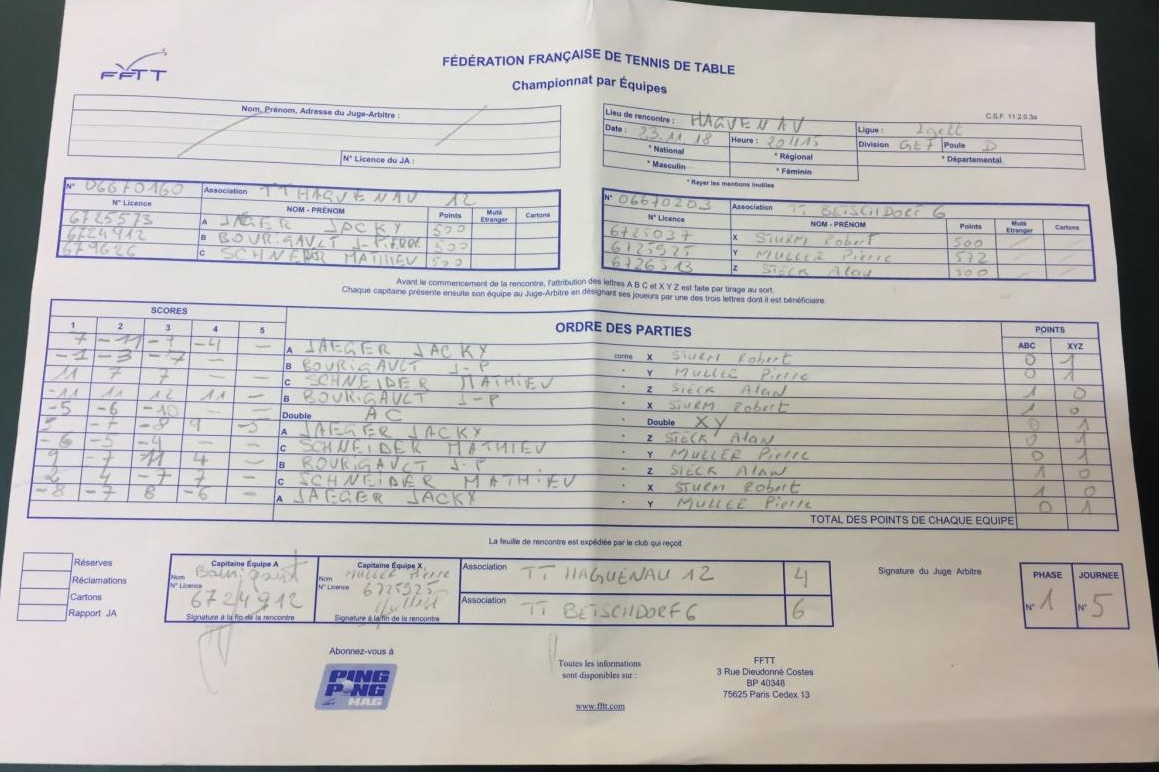 FFTT
FÉDÉRATION FRANÇAISE DE TENNIS DE TABLE
Championnat par Équipes
C.S.F. 11.2.0.3a
Nom, Prénom, Adresse du Juge-Arbitre :
N° Licence du JA :
Lieu de rencontre : HAGUENAU Ligue :
Date : 23.11.18 Heure : 20H15 Division GE7 Poule D
* National * Régional * Départemental
* Masculin * Féminin
* Rayer les mentions inutiles
N° 06670160 Association TT HAGUENAU 12
N° Licence NOM - PRÉNOM Points Muté Etranger Cartons
6725573 A JAEGER JACKY 500
6724912 B BOURIGAULT J-PIERRE 500
679626 C SCHNEIDER MATHIEU 500
N° 06670203 Association TT BETSCHDORF 6
N° Licence NOM - PRÉNOM Points Muté Etranger Cartons
6725037 X STURM Robert 500
6725925 Y MULLER Pierre 572
6726513 Z SIECK Alan 500
Avant le commencement de la rencontre, l'attribution des lettres A B C et X Y Z est faite par tirage au sort.
Chaque capitaine présente ensuite son équipe au Juge-Arbitre en désignant ses joueurs par une des trois lettres dont il est bénéficiaire.
SCORES ORDRE DES PARTIES POINTS
1 2 3 4 5 ABC XYZ
7 -11 -9 -4 - A JAEGER JACKY contre X STURM Robert 0 1
-1 -3 -7 - - B BOURIGAULT J-P " Y MULLER Pierre 0 1
11 7 7 - - C SCHNEIDER MATHIEU " Z SIECK Alan 1 0
-11 11 12 11 - B BOURIGAULT J-P " X STURM Robert 1 0
-5 -6 -10 - - Double AC " Double XY 0 1
-7 -8 9 -5 A JAEGER JACKY " Z SIECK Alan 0 1
-6 -5 -4 - - C SCHNEIDER MATHIEU " Y MULLER Pierre 0 1
9 -7 11 4 - B BOURIGAULT J-P " Z SIECK Alan 1 0
2 4 -7 7 - C SCHNEIDER MATHIEU " X STURM Robert 1 0
-8 -7 8 -6 - A JAEGER JACKY " Y MULLER Pierre 0 1
TOTAL DES POINTS DE CHAQUE EQUIPE
La feuille de rencontre est expédiée par le club qui reçoit
Réserves
Réclamations
Cartons
Rapport JA
Capitaine Équipe A
Nom Bourigault
N° Licence 6724912
Signature à la fin de la rencontre
Capitaine Équipe X
Nom MULLER Pierre
N° Licence 6725925
Signature à la fin de la rencontre
Association TT HAGUENAU 12 4
Association TT BETSCHDORF 6 6
Signature du Juge Arbitre
PHASE JOURNEE
N° 1 N° 5
Abonnez-vous à
PING PONG MAG
Toutes les informations
sont disponibles sur :
www.fftt.com
FFTT
3 Rue Dieudonné Costes
BP 40348
75625 Paris Cedex 13